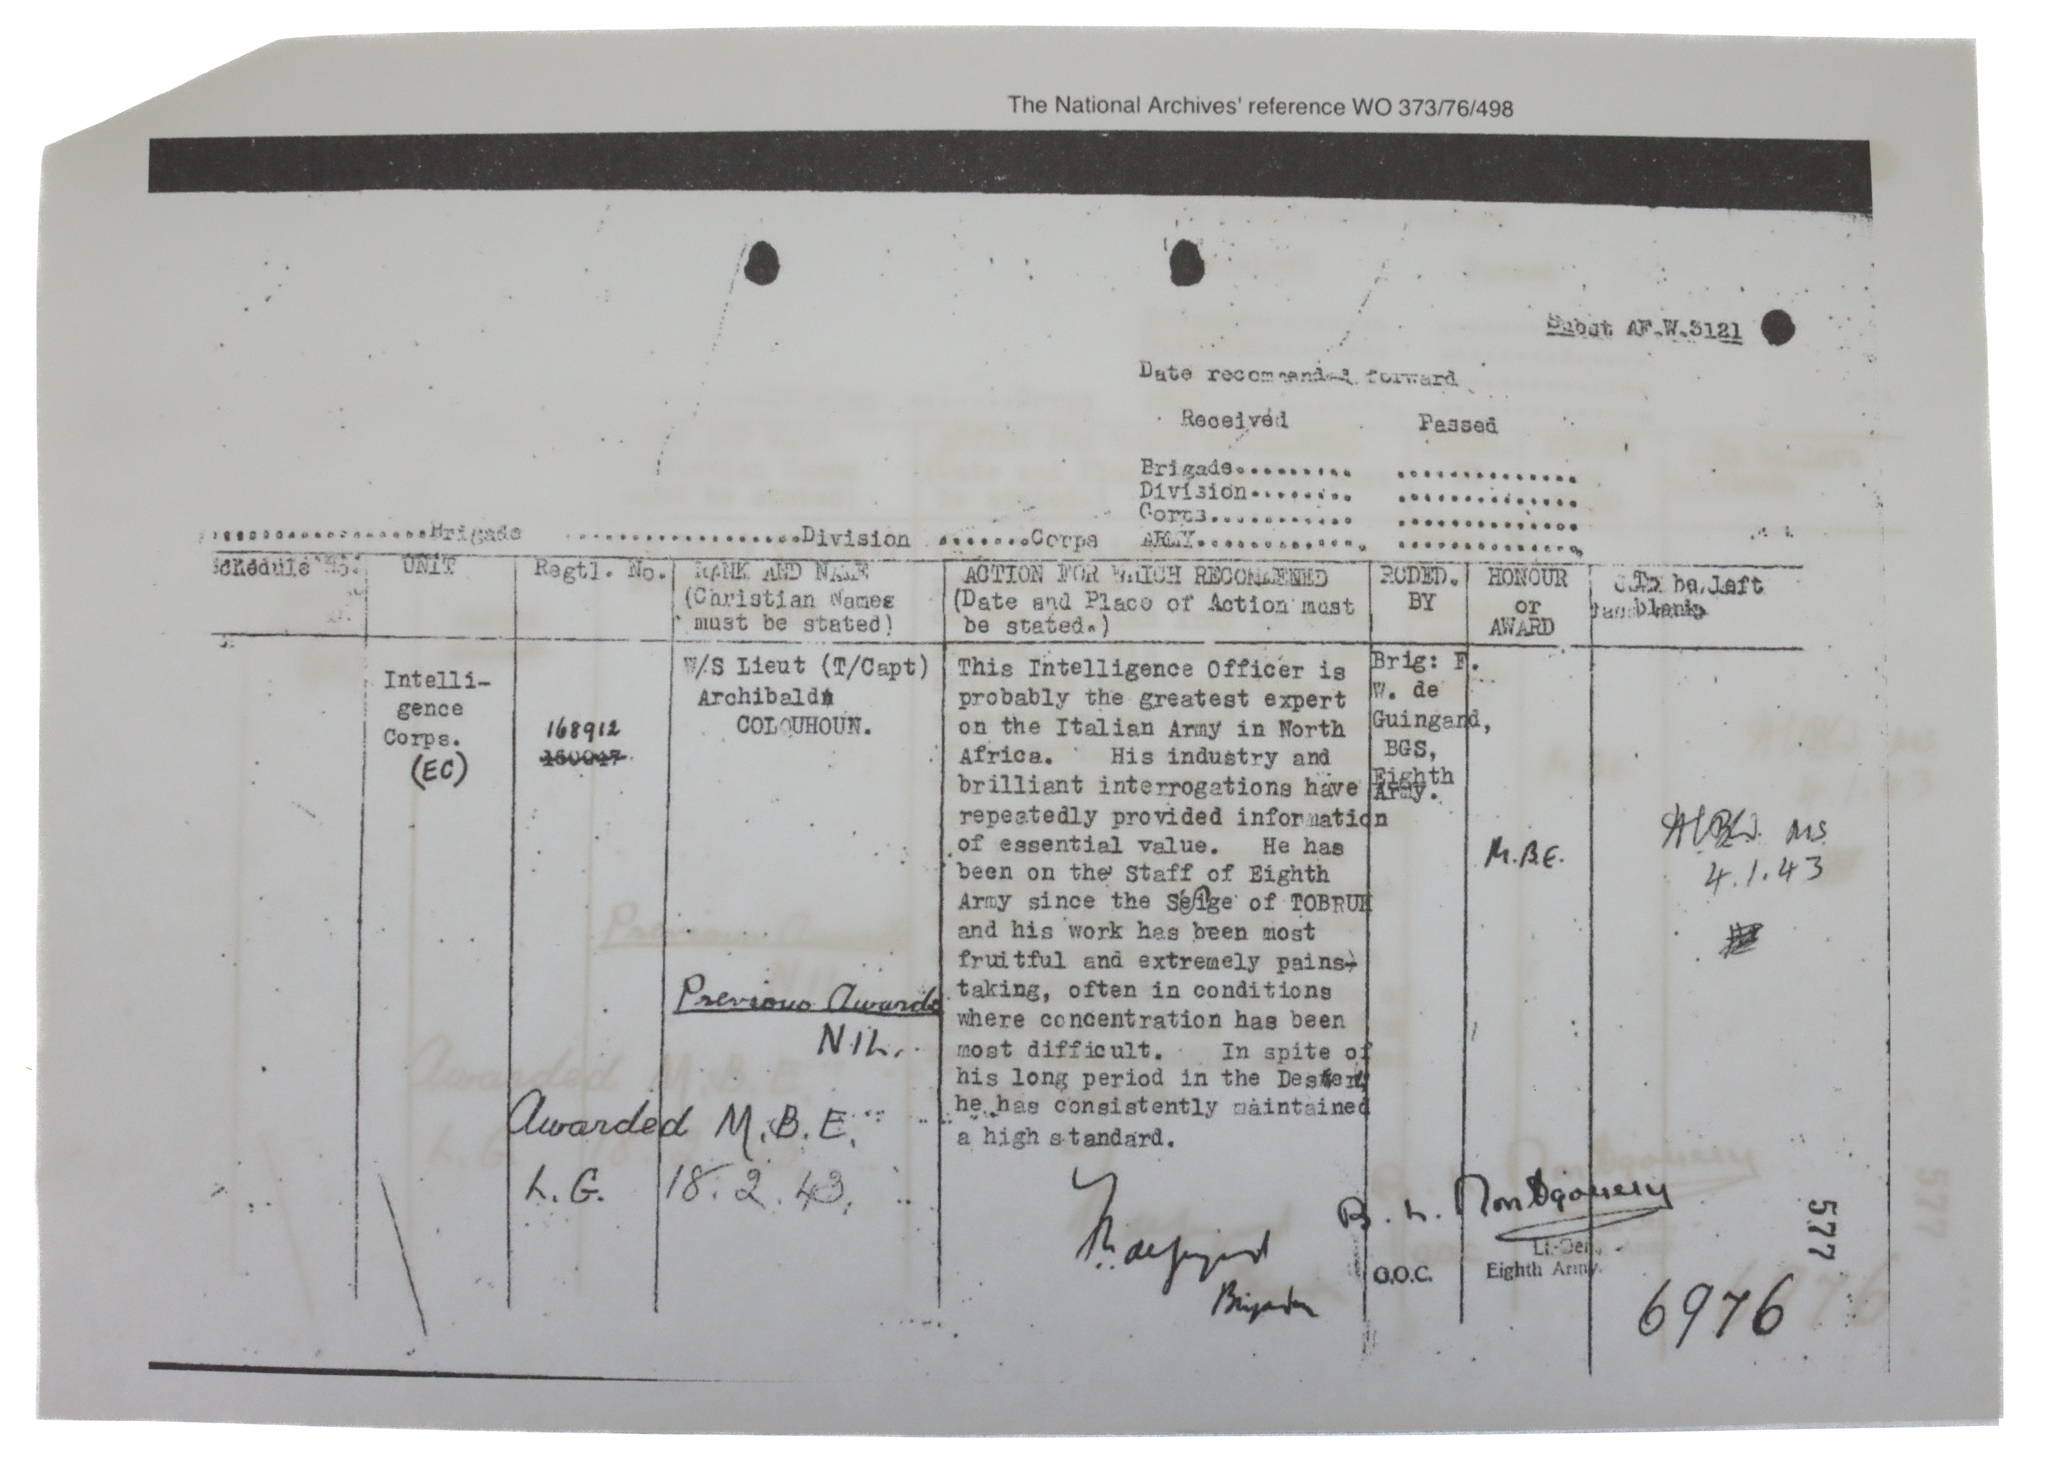 The National Archives' reference WO 373/76/498
Subst AF.W.3121
Date recommended forward
Received Passed
Brigade.......... ..............
Division......... ..............
Corps............ ..............
..................Brigade ..................Division ........Corps ARMY.............. ..............
Schedule No. UNIT Regtl. No. RANK AND NAME ACTION FOR WHICH RECOMMENDED RCDED. HONOUR To be left
(Christian Names (Date and Place of Action must BY or blank
must be stated) be stated.) AWARD
Intelli-
gence
Corps.
(EC)
168912
W/S Lieut (T/Capt)
Archibald
COLQUHOUN.
Previous Awards
NIL.
Awarded M.B.E.
L.G. 18.2.43.
This Intelligence Officer is
probably the greatest expert
on the Italian Army in North
Africa. His industry and
brilliant interrogations have
repeatedly provided information
of essential value. He has
been on the Staff of Eighth
Army since the Seige of TOBRUK
and his work has been most
fruitful and extremely pains-
taking, often in conditions
where concentration has been
most difficult. In spite of
his long period in the Desert,
he has consistently maintained
a high standard.
Brig: F.
W. de
Guingand,
BGS,
Eighth
Army.
M.B.E.
MS
4.1.43
Brigadier
B. L. Montgomery
Lt.-Gen.
G.O.C. Eighth Army.
577
6976